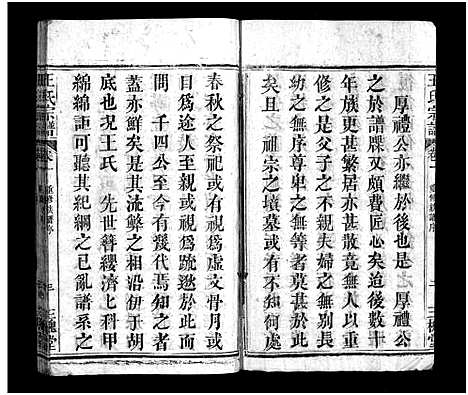 王氏宗譜
卷一
重修族譜序
二
三槐堂
厚禮公亦繼於後也是厚禮公
之於譜牒又頗費匠心矣迨後數十
年更甚繁居亦甚散竟無人以重
修之是父子之不親夫婦之無別長
幼之無序尊卑之無等者莫甚於此
矣且祖宗之墳墓或有何處
春秋之祭祀或有虛文骨月而
目為途人至親或視為疏遜於此而
問千四公至今有幾代焉知之者
蓋亦鮮矣是其流弊之相沿伊于胡
底也况王氏先世簪纓濟上科甲
綿綿詎可聽其紀綱之已亂譜系之
王氏宗譜
卷一
重修族譜序
三
三槐堂